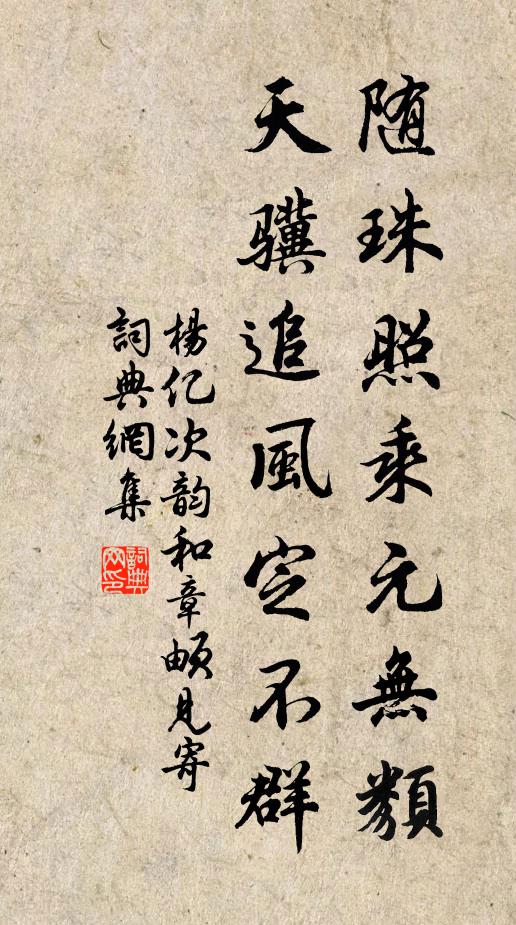 随珠照乘元無類
天驥追風定不群
楊亿次韵和章頔見寄
詞典網集
詞典网印